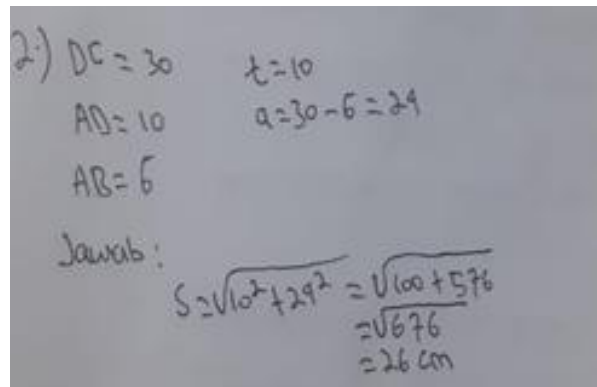 2.) DC = 30 t = 10
AD = 10 a = 30 - 6 = 24
AB = 6
Jawab :
S = √10² + 24² = √100 + 576
= √676
= 26 cm